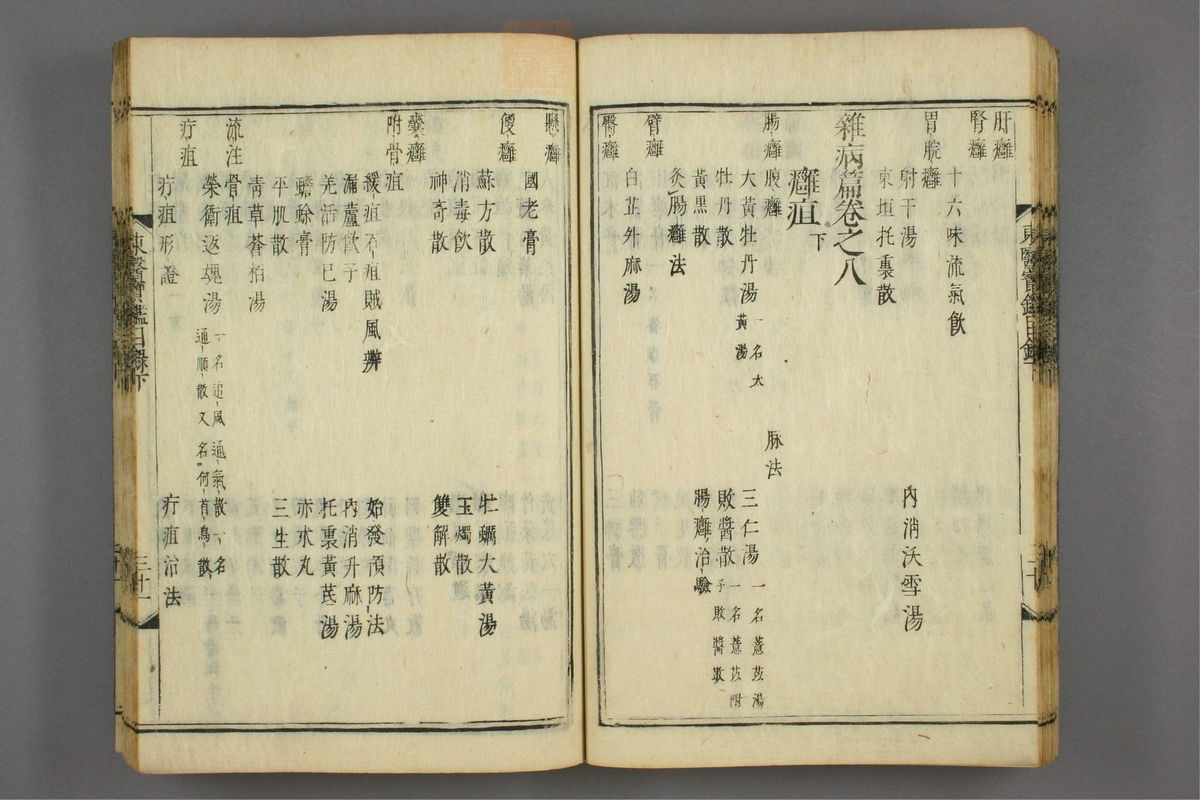 肝癰
腎癰
十六味流氣飲
胃脘癰
射干湯
內消沃雪湯
東垣托裏散
雜病篇卷之八
癰疽下
腸癰腹癰
脉法
大黃牡丹湯一名大黃湯
三仁湯一名薏苡湯
牡丹散
敗醬散一名薏苡附子敗醬散
黃黑散
腸癰治驗
灸腸癰法
臂癰
白芷升麻湯
臀癰
懸癰
國老膏
便癰
蘇方散
牡蠣大黃湯
消毒飲
玉燭散
神奇散
雙解散
囊癰
附骨疽
緩疽石疽賊風辨
始發預防法
漏蘆飲子
內消升麻湯
羌活防己湯
托裏黃芪湯
蟾蛤膏
赤朮丸
平肌散
三生散
青草蒼柏湯
流注骨疽
榮衛返魂湯一名追風通氣散一名通順散又名何首烏散
疔疽
疔疽形證
疔疽治法
東醫寶鑑目錄下
三十一